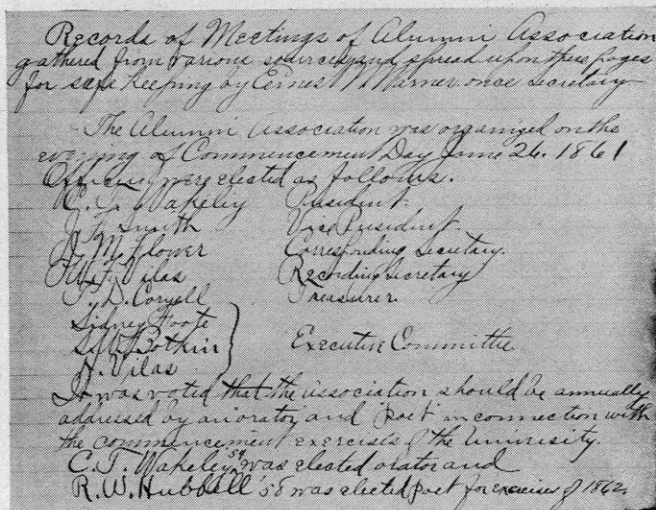 Records of Meetings of Alumni Association
gathered from various sources and spread upon these pages
for safe keeping by Ernest N Warner once secretary
The Alumni Association was organized on the
evening of Commencement Day June 26. 1861
Officers were elected as follows.
C. T. Wakeley President
J. F. Smith Vice President
J. M. Flower Corresponding Secretary.
Wm. F. Vilas Recording Secretary
T. D. Coryell Treasurer.
Sidney Foote
Botkin Executive Committee
H. Vilas
It was voted that the association should be annually
addressed by an orator and poet in connection with
the commencement exercises of the University.
C. T. Wakeley '54 was elected orator and
R. W. Hubbell '58 was elected poet for exercises of 1862.